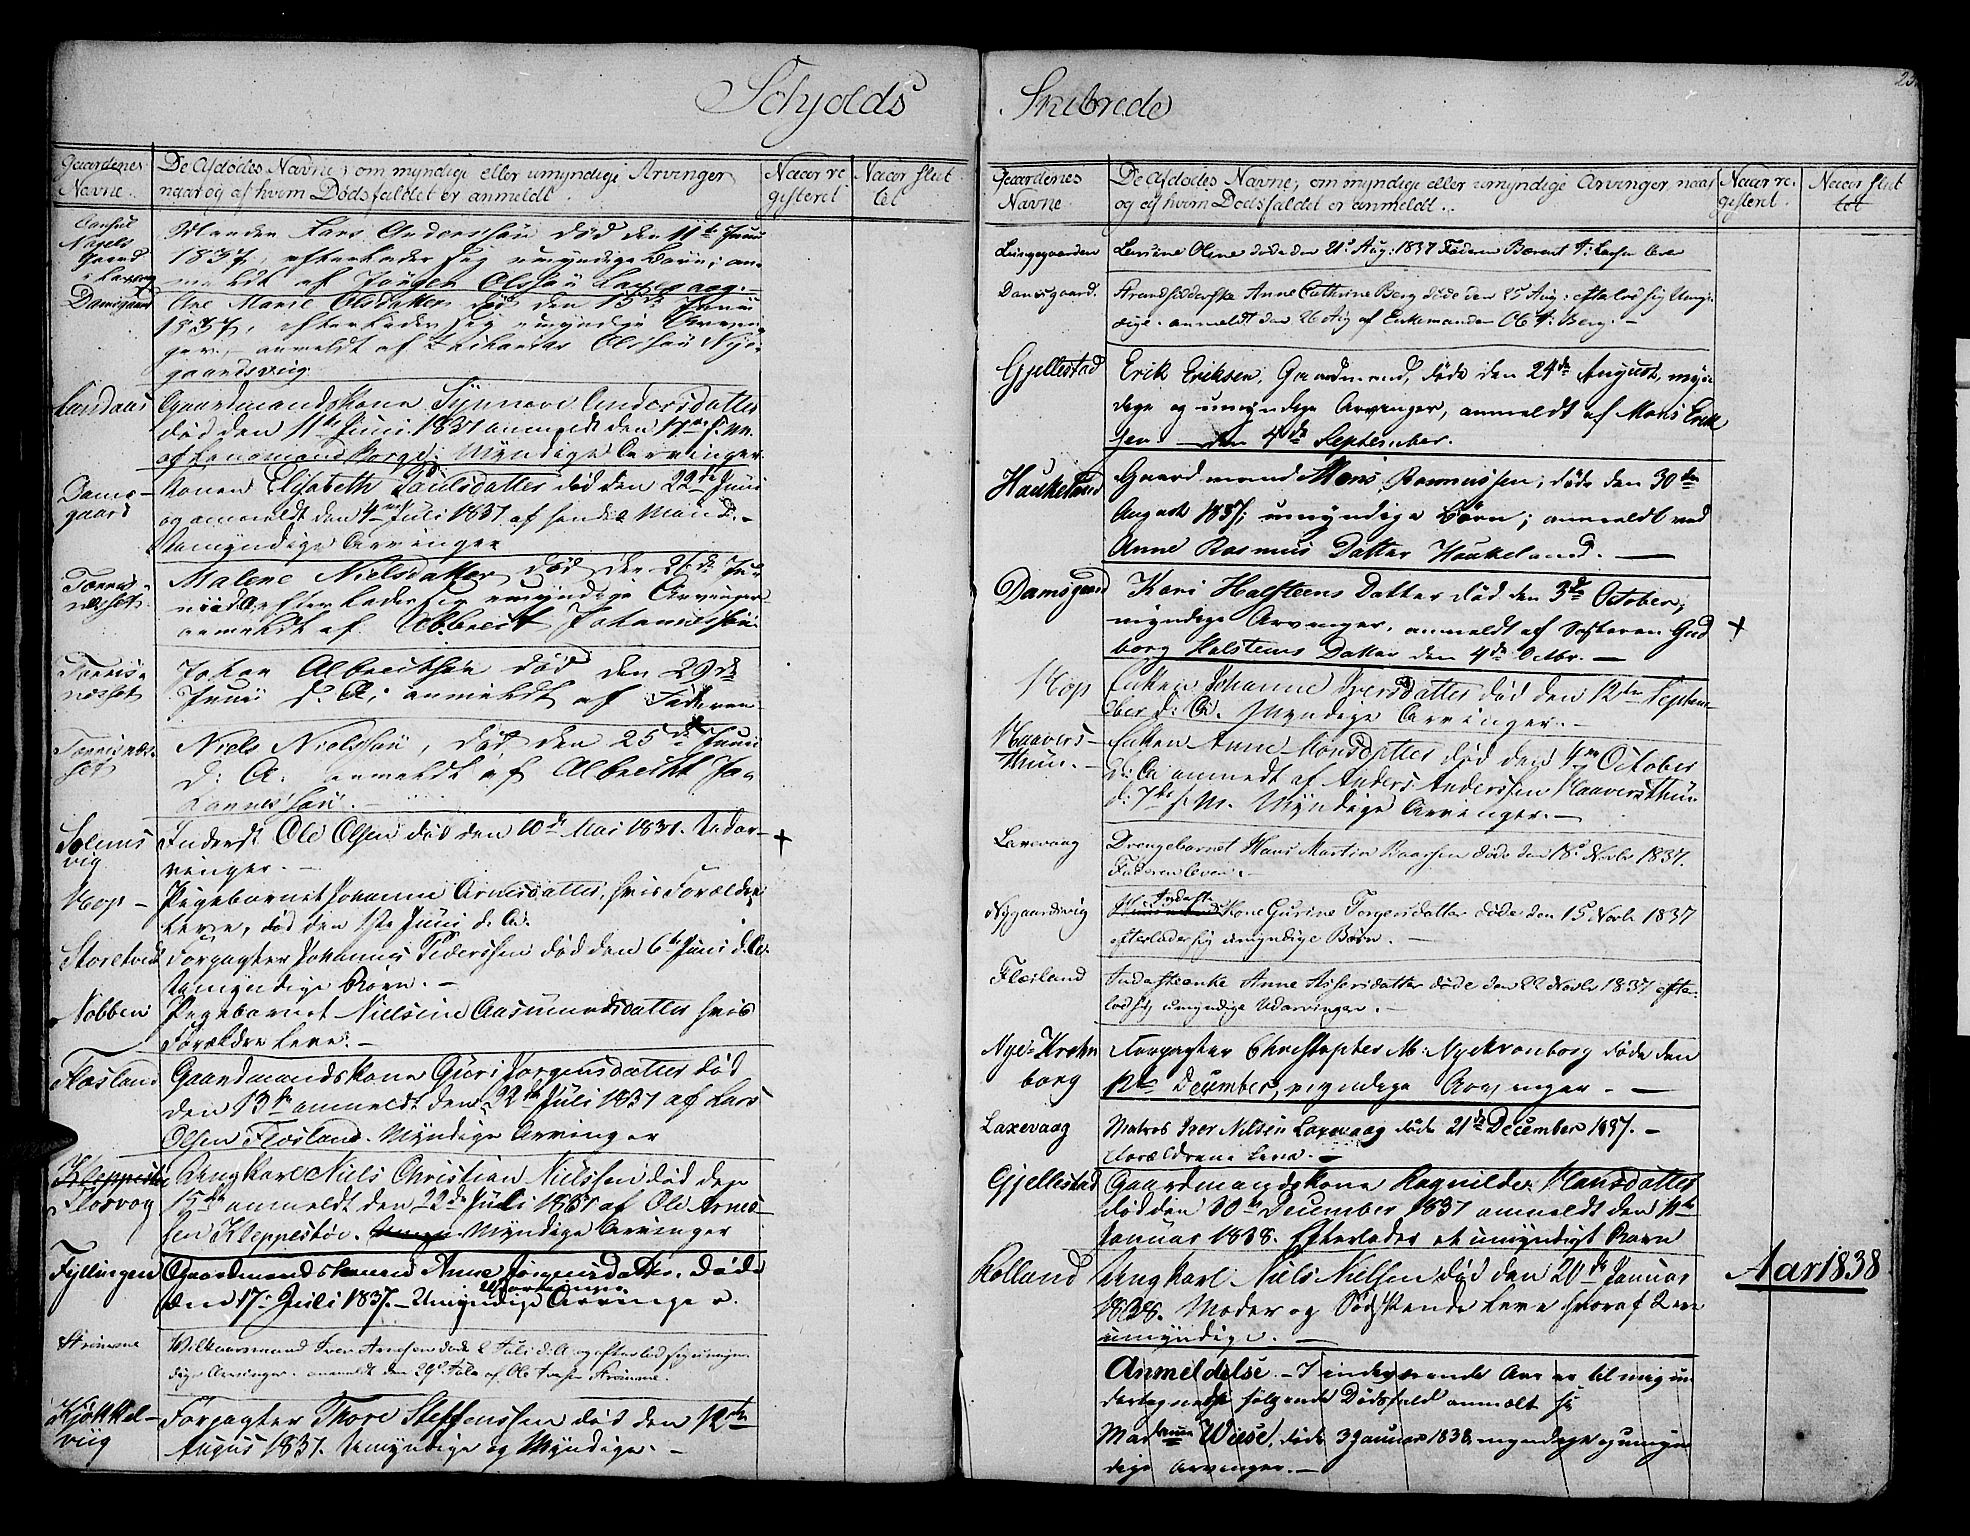 Schjolds Skibrede
Gaardenes Navne.
De Afdødes Navne, om myndige eller umyndige Arvinger
naar og af hvem Dødsfaldet er anmeldt.
Naar re
gisteret
Naar slut
tet
Consul
Gaard
Manden Lars Anderssøn død den 11te Juni
1837, efterlader sig umyndige Børn; an-
meldt af Jørgen Olssøn Laxevaag.
Damsgaard
Marie Olsdatter død den 15de Junii
1837, efterlader sig umyndige Arvin-
ger. anmeldt af Olssøn Nye-
gaardsviig
Landaas
Gaardmandskone Synneve Andersdatter
død den 11te Junii 1837 anmeldt den
Myndige Arvinger
Dams-
gaard
Konen Elisabeth Poulsdatter død den 22de Juni
og anmeldt den 4de Juli 1837 af hendes Mand.-
Umyndige Arvinger
Tørris-
næsset
Malene Nielsdatter død den
efterlader sig umyndige Arvinger
anmeldt af Albreckt Johannessøn
Torris-
næsset
Johan Albrecktsøn død den 29de
Junii d. A; anmeldt af Faderen
Torrisnæs-
set
Niels Nielssøn, død den 25de Junii
d: A: anmeldt af Albreckt Jo-
hannessøn.-
Solems
vig
Inderst Ole Olsen død den 10de Mai 1837. Udar-
vinger.-
Hop-
Pigebarnet Johanne Arnesdatter, hvis Forældre
leve, død den 1ste Juni d. A.
Storetvedt
Forpagter Johannes Pederssen død den 6te Juni d. A.
Umyndige Børn.-
Nobben
Pigebarnet Nielsine Aasmundsdatter hvis
Forældre leve.-
Flæsland
Gaardmandskone Guri Jørgensdatter død
den 13de anmeldt den 22de Juli 1837 af Lars
Olsen Flæsland. Myndige Arvinger
Kleppestø
Florvog
Ungkarl Niels Christian Nielssen død den
15de anmeldt den 22de Juli 1837 af Ole Arnes-
sen Kleppestøe. Myndige Arvinger
Fyllingen
Gaardmandskonen Anne Jørgensdatter, døde
den 17e Juli 1837.- Umyndige Arvinger.
Strømme
Vilkaarsmand Iver Arnesen døde 2 Juli d. A. og efterlod sig umyn-
dige Arvinger. anmeldt den 29de Juli af Ole Iversen Strømme.
Kjøkkel-
viig
Forpagter Thore Steffenssen død den 12te
August 1837. Umyndige og Myndige.-
Gaardenes
Navne.
De Afdødes Navne, om myndige eller umyndige Arvinger, naar
og af hvem Dødsfaldet er anmeldt.
Naar re-
gisteret.
Naar slut
tet
Lungegaarden
Lensine Oline døde den 21de Aug: 1837 Faderen Berent A: Larsen lever
Damsgaard.
Anne Cathrine Berg døde den 25 Aug: efterlod sig Umyn-
dige. anmeldt den 26 Aug af Enkemanden Berg.-
Gjellestad
Erik Eriksen, Gaardmand, døde den 24de August, myn-
dige og umyndige Arvinger, anmeldt af Mons Erik
sen - den 4de September.
Haukeland
Gaardmand Mons Rasmussen, døde den 30de
August 1837; umyndige Børn; anmeldt ved
Anne Rasmus Datter Haukeland.-
Damsgaard
Kari Halsteens Datter død den 3de October,
myndige Arvinger, anmeldt af Søsteren Gud
borg Halsteens Datter den 4de Octbr.-
Hop
Enken Johanne Iversdatter død den 12te Septem-
ber d: A. Myndige Arvinger.-
Haavers-
thun.-
Enken Anne Monsdatter død den 4de October
d: A anmeldt af Anders Anderssen Haaversthun
d: 7de s. M. Myndige Arvinger.-
Laxevaag
Drengebarnet Hans Martin Baarsen døde den 18de Novbr 1837.
Faderen lever.-
Nygaardsvig
Kone Gurine Torgersdatter døde den 15 Novbr 1837
efterlader sig umyndige Børn.-
Flæsland
Indersteenke Anne Assersdatter døde den 22 Novbr 1837 efter-
lod sig umyndige Udarvinger.-
Nye-Krohn
borg
Forpagter Christopher M: Nyekronborg døde den
12te December, myndige Arvinger.-
Laxevaag
Matros Iver Nilsen Laxevaag døde 21de December 1837.-
Forældrene leve.-
Gjellestad
Gaardmandskone Ragnilde Hansdatter
død den 30te December 1837 anmeldt den 11te
Januar 1838. Efterlader et umyndigt Barn
Aar 1838
Rolland
Ungkarl Niels Nielsen død den 20de Januar
1838. Moder og Sødskende leve hvoraf 2 ere
umyndige.-
Anmeldelse.- I indeværende Aar er til mig un
dertegnede følgende Dødsfald anmeldt
Madame Wiese, døde 3 Januar 1838, myndige og umyn
dige Arvinger.-